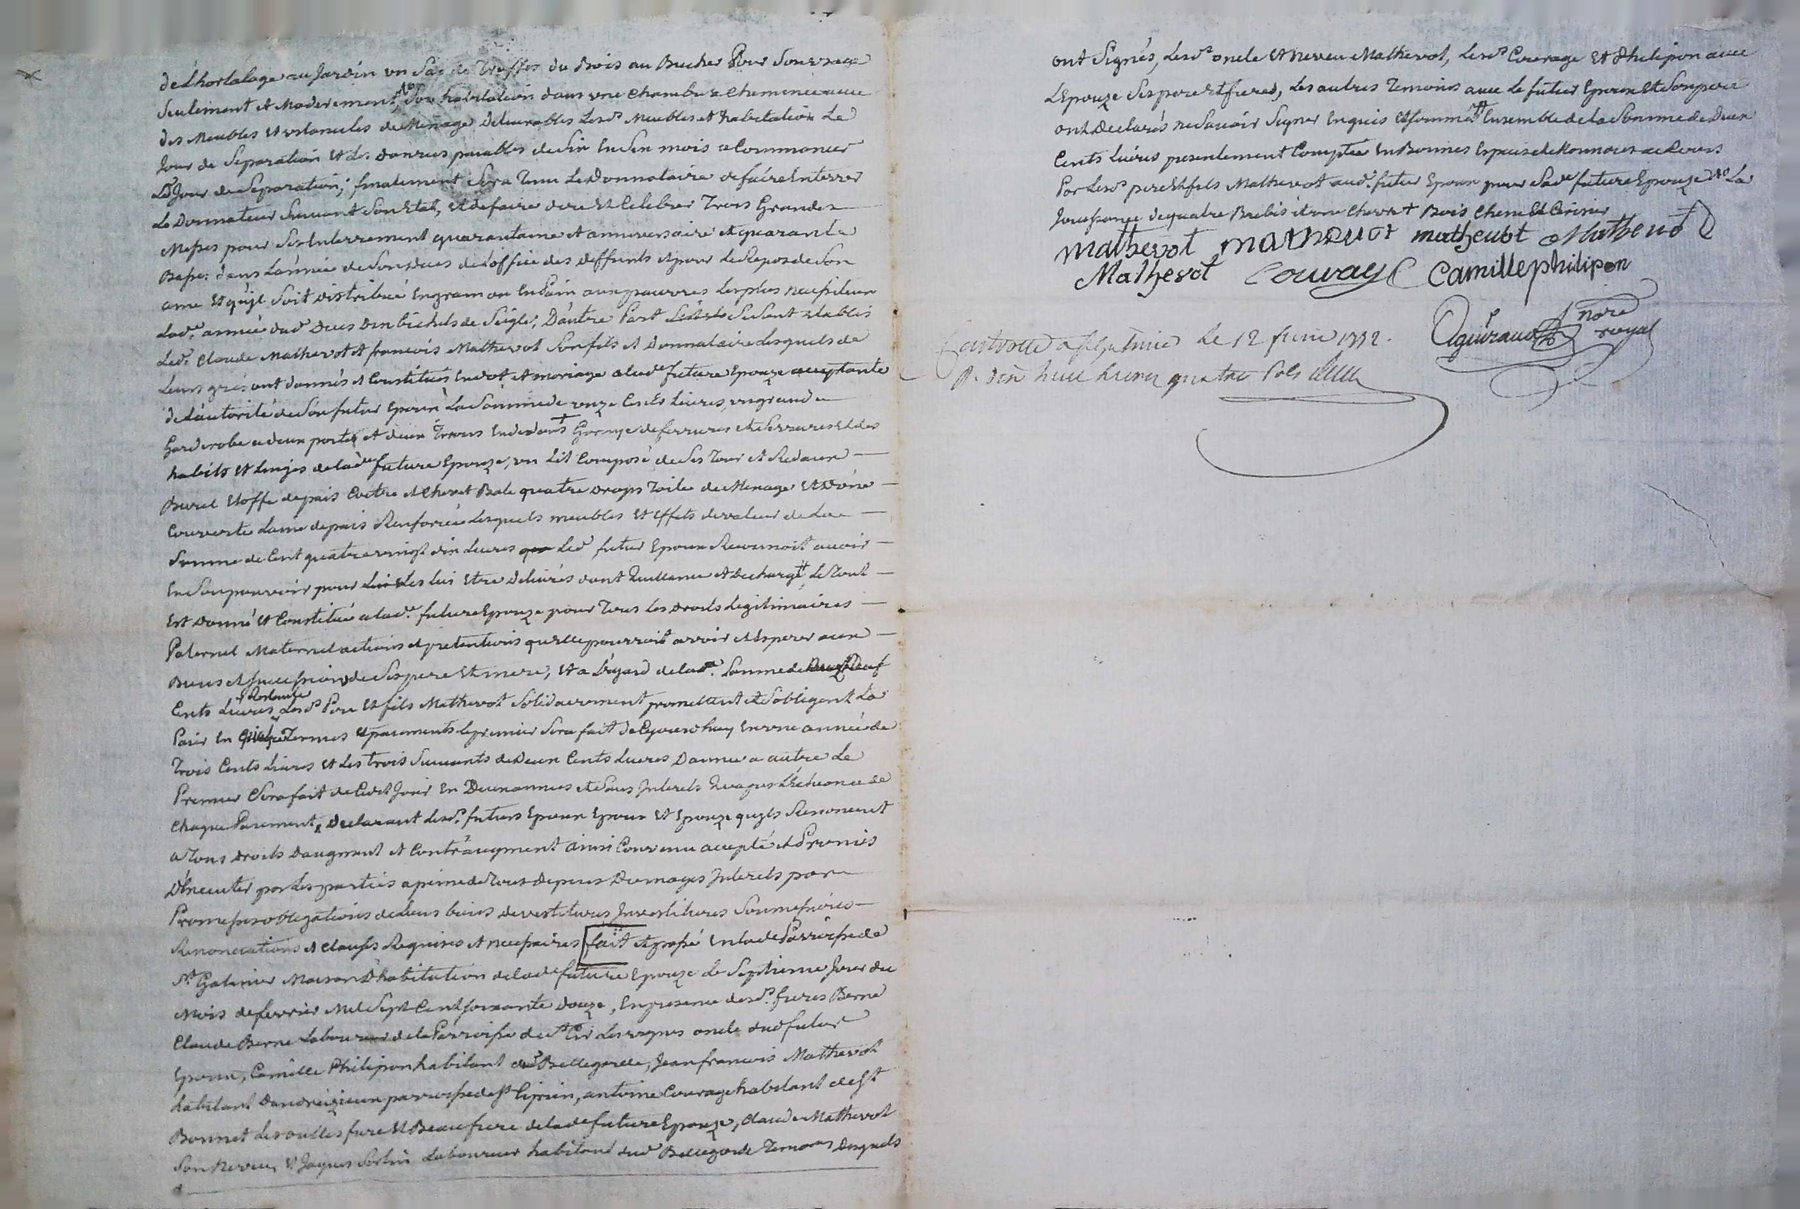 de L'hortalage au Jardin un Sac de Truffes du Bois au Bucher Pour Son usage
Seulement et Moderement, Son habitation dans une Chambre a Cheminée avec
des Meubles et ustancilles de Menage Delivrables Lesd. Meubles et habitation Le
Jour de Separation et Les danrees paiables de Six En Six mois a Commancer
Led. Jour de Separation; finalement Sera Tenu Le Donnataire de faire Enterrer
Le Donnateur Suivant Son Etat, et de faire dire et Celebrer Trois Grandes
Messes pour Ses Enterrement quarantaine et anniversaire et quarante
Basses dans L'année de Son deces de L'office des deffunts et pour Le Repos de Son
ame et qu'yl Soit distribué En grain ou En Pain aux pauvres Les plus necessiteux
Lad. année dud. deces dix bichets de Seigle; D'autre Part Se Sont Etablis
Led. Claude Mathevot et francois Mathevot Son fils et Donnataire Lesquels de
Leurs grés ont donnés et Constitués En dot et mariage a Lad. future Epouze acceptante
de L'autorité de Son futur Epoux La Somme de onze Cents Livres, un grand
Garderobe a deux portes et deux Tiroirs En dedans Garnye de ferrures et Serrures et des
habits et Linges de Lad. future Epouze, un Lit Composé de Ses Tour et Rideaux
Burel Etoffe de pais Coitre et Chevet Bale quatre draps Toile de Menage et d'une
Couverte Laine de pais Renforcée Lesquels meubles et Effets de valeur de La
Somme de Cent quatre vingt dix Livres Led. futur Epoux Reconnoit avoir
En Son pouvoir pour Les lui Etre Delivrés dont Quittance et decharge, Le Tout
Est donné et Constitué a Lad. future Epouze pour Tous Les Droits Legitimaires
Paternel Maternel actions et pretentions qu'elle pourroit avoir et Esperer aux
Biens et successions de Ses pere et mere, et a L'egard de Lad. Somme de Neuf
Cents Livres Restante Lesd. Pere et fils Mathevot Solidairement promettent et S'obligent La
Paier En quatre Termes et paiements Le premier Sera fait de Ce jourd'huy En une année de
Trois Cents Livres et Les trois Suivants de Deux Cents Livres D'année a autre Le
Premier Sera fait de Ced. Jour En Deux années et Sans Interets Jusques L'echeance de
Chaque Paiement, Declarant Lesd. futurs Epoux Epoux et Epouze qu'yls Renoncent
a Tous Droits D'augment et Contr'augment ainsi Convenu accepté et Promis
D'executer par Les parties a peine de Tous depens Domages Interets par
Promesses obligations de Leurs biens devestitures Investitures Soumissions
Renonciations et Clauses Requises et necessaires fait et passé En lad. Parroisse de
St. Galmier Maison D'habitation de Lad. future Epouze Le Septieme Jour du
Mois de fevrier Mil Sept Cent soixante douze, En presence desd. freres Berne
Claude Berne Laboureur de la Parroisse de St. Cir Les vignes oncle dud. futur
Epoux, Camille Philipon habitant de Bellegarde, Jean francois Mathevot
habitant D'andrézieux parroisse de St. Ciprien, antoine Courage habitant de St.
Bonnet Les oulles frere et Beaufrere de Lad. future Epouze, Claude Mathevot
Son Neveu, et Jaques Laboureur habitant dud. Bellegarde Temoins Desquels
ont Signés, Lesd. oncle et Neveu Mathevot, Lesd. Courage et Philipon avec
L'Epouze Ses pere et freres, Les autres Temoins avec Le futur Epoux et Son pere
ont Declarés ne Scavoir Signer Enquis et sommés Ensemble de La Somme de Deux
Cents Livres presentement Comptée En Bonnes Especes de Monnoies de Cours
Par Lesd. pere et fils Mathevot aud. futur Epoux pour Sad. future Epouze La
Jouissance de quatre Brebis et une Chevre Bois Chene et Cerisier
mathevot mathevot mathevot Mathevot
Mathevot Courage Camille philipon
Aguiraud Nore royal
a St Galmier Le 12 fevrier 1772.
R. dix huit Livres quatre Sols